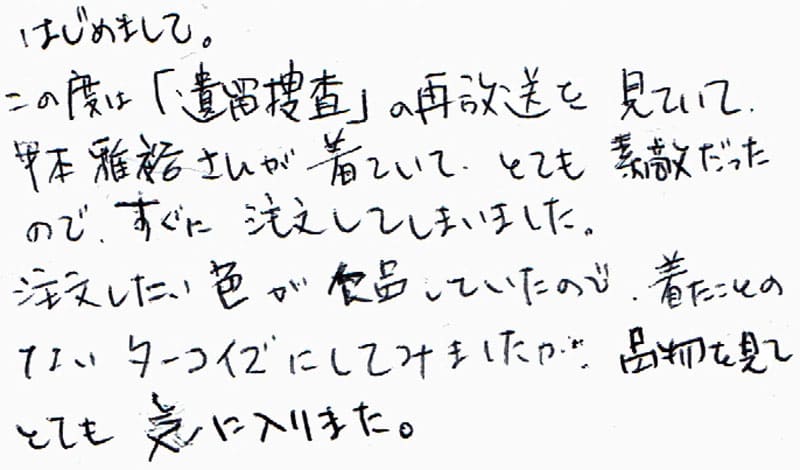 はじめまして。
この度は「遺留捜査」の再放送を見ていて、
甲本雅裕さんが着ていて、とても素敵だった
ので、すぐに注文してしまいました。
注文したい色が欠品していたので、着たことの
ないターコイズにしてみましたが、品物を見て
とても気に入りました。